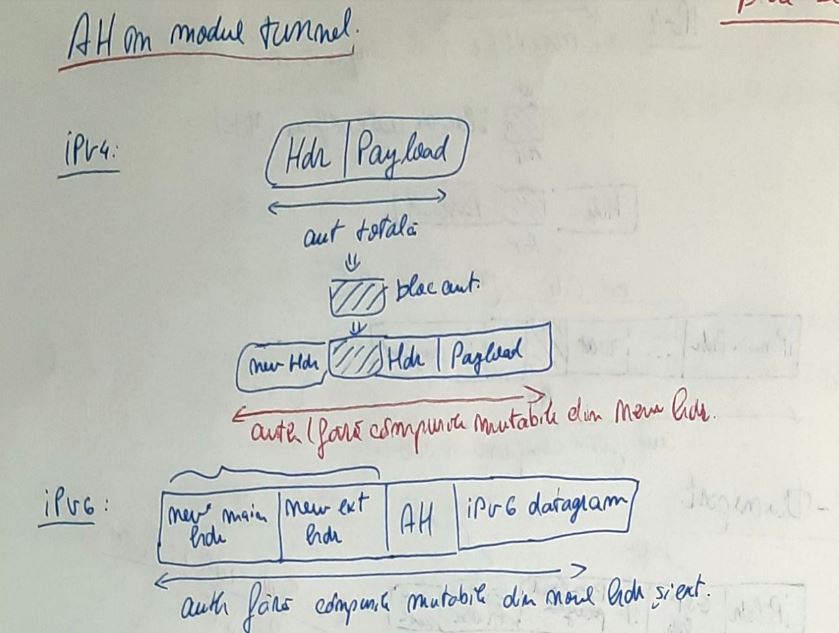 AH în modul tunnel.
IPv4:
Hdr | Payload
aut totală
bloc aut.
new Hdr Hdr | Payload
auth (fără câmpurile mutabile din new hdr.
IPv6:
new main hdr new ext hdr AH IPv6 datagram
auth fără câmpurile mutabile din noul hdr și ext.